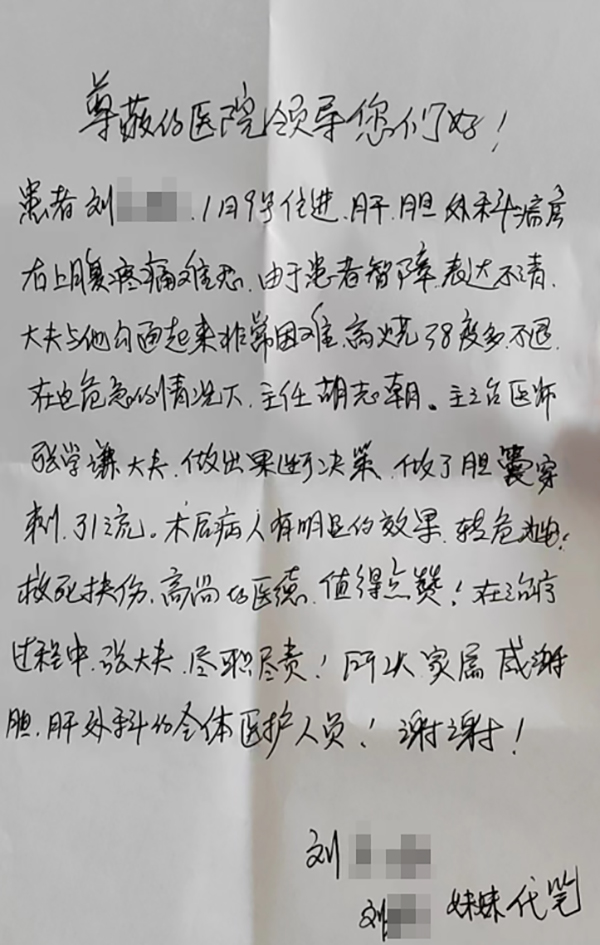 尊敬的医院领导您们好!
患者刘 1月9号住进.肝.胆外科病房
右上腹疼痛难忍.由于患者智障.表达不清.
大夫与他沟通起来非常困难.高烧38度多不退.
在这危急的情况下.主任胡志朝。主治医师
张学谦大夫.做出果断决策.做了胆囊穿
刺.引流。术后病人有明显的效果.转危为安.
救死扶伤.高尚的医德.值得点赞!在治疗
过程中.张大夫.尽职尽责!所以家属感谢
胆.肝外科的全体医护人员!谢谢!
刘
刘 妹妹代笔